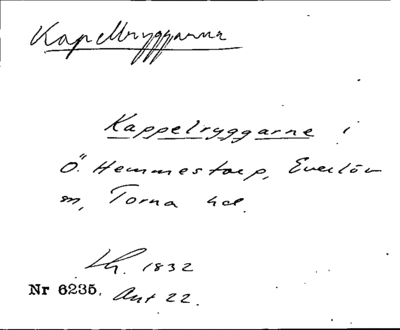 Kapellryggarna
Kappelryggarne i
Ö. Hemmestorp, Everlöv
sn, Torna hd.
Lh. 1832
Nr 6235. Akt 22.